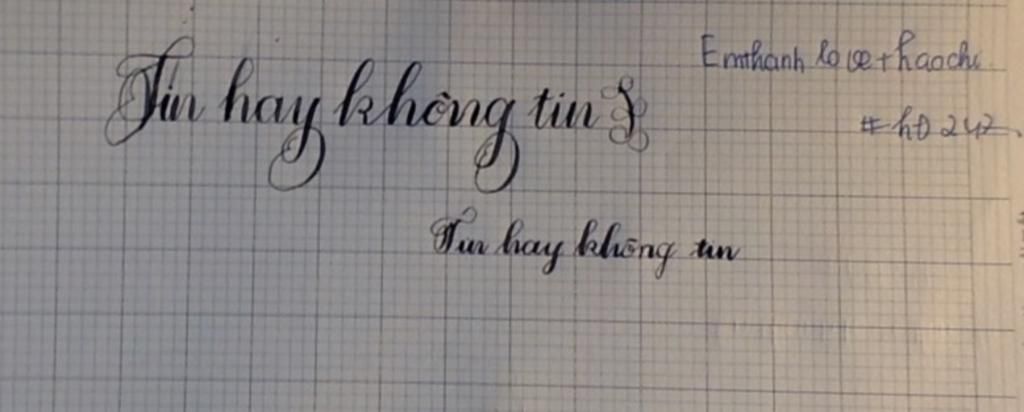 Tin hay không tin
Emthanh love thaochi
#hD 242
Tin hay không tin